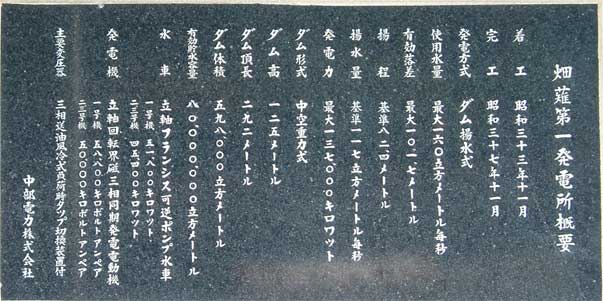 畑薙第一発電所概要
着工 昭和三十三年十一月
完工 昭和三十七年十一月
発電方式 ダム揚水式
使用水量 最大一六〇立方メートル毎秒
有効落差 最大一〇一・七メートル
揚程 基準八二・四メートル
揚水量 基準一一七立方メートル毎秒
発電力 最大一三七〇〇〇キロワット
ダム形式 中空重力式
ダム高 一二五メートル
ダム頂長 二九二メートル
ダム体積 五九八〇〇〇立方メートル
有効貯水容量 八〇〇〇〇〇〇〇立方メートル
水車 立軸フランシス可逆ポンプ水車
一号機 五一八〇〇キロワット
二・三号機 四五四〇〇キロワット
発電機 立軸回転界磁三相同期発電電動機
一号機 五八八〇〇キロボルトアンペア
二・三号機 五〇〇〇〇キロボルトアンペア
主要変圧器 三相送油風冷式負荷時タップ切換装置付
中部電力株式会社